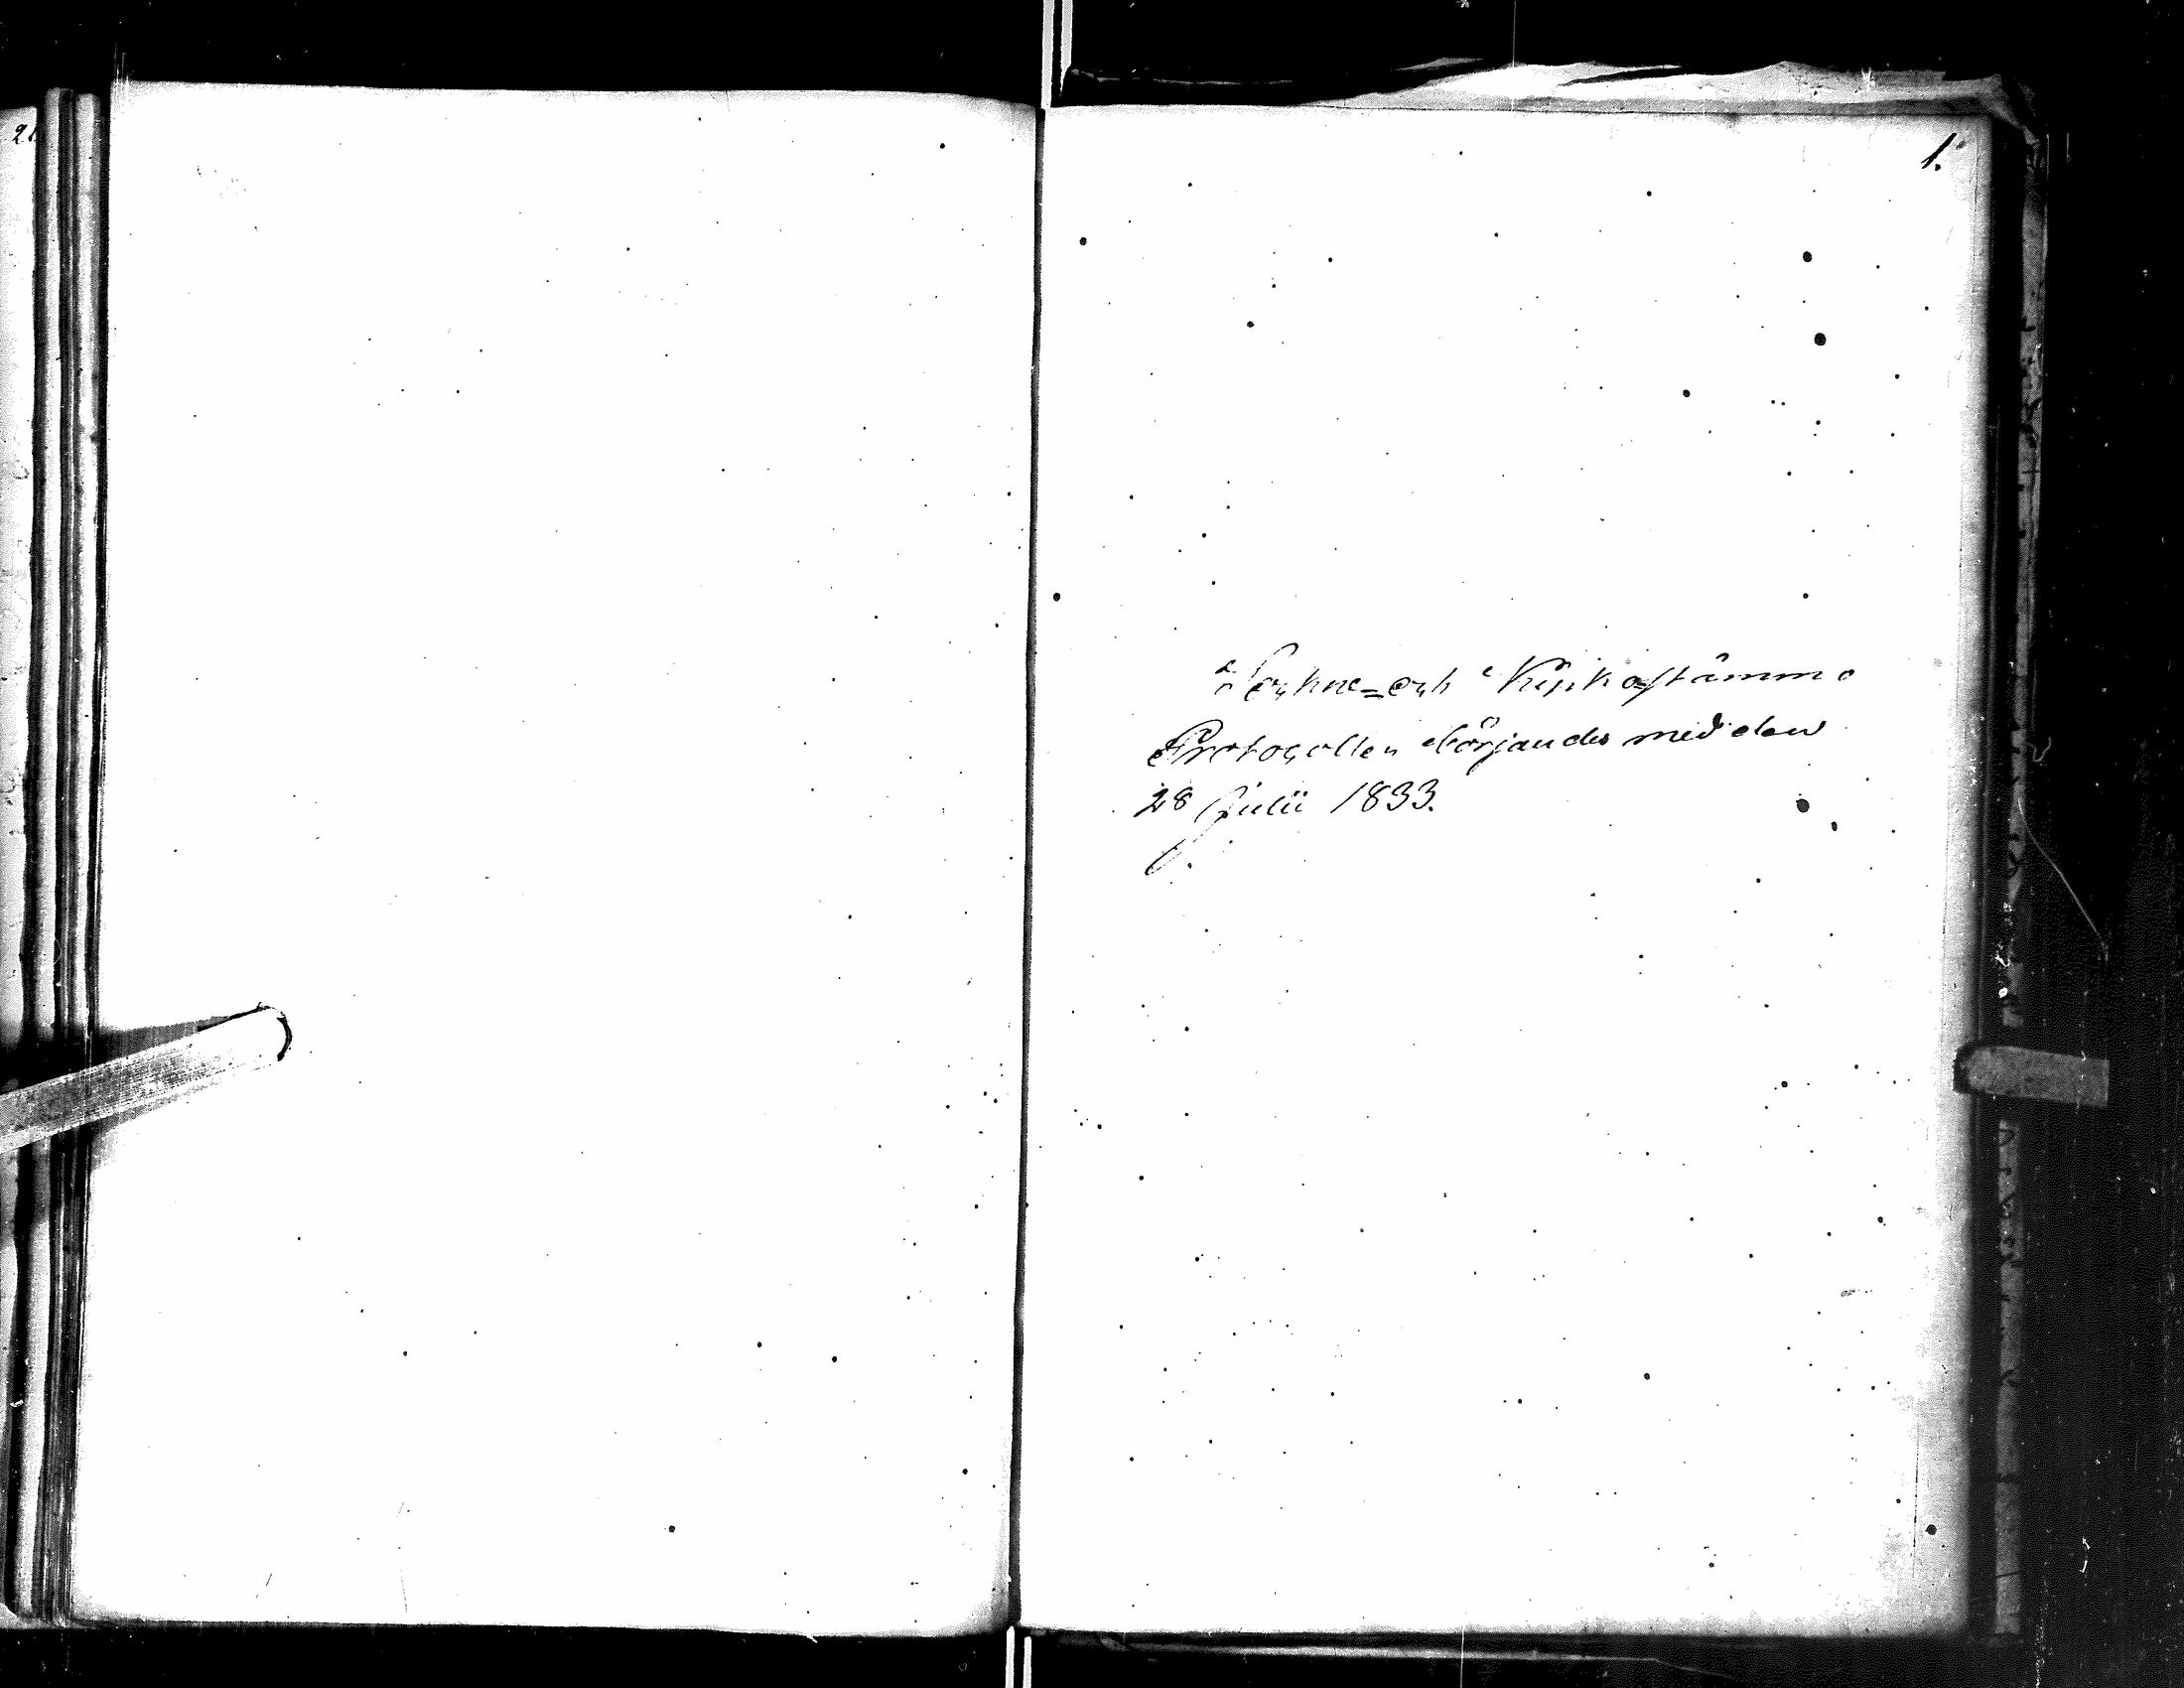 1.
Sockne-och Kyrkostämmo
Protocollen börjandes med den
28 Julii 1833.